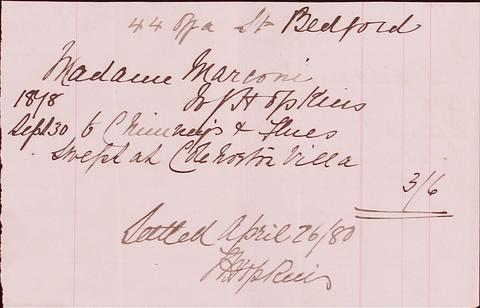 44 St Bedford
Madame Marconi
1878 To J Hopkins
Sept 30 6 Chimneys & Flues
swept at Villa
3/6
Settled April 26/80
J Hopkins